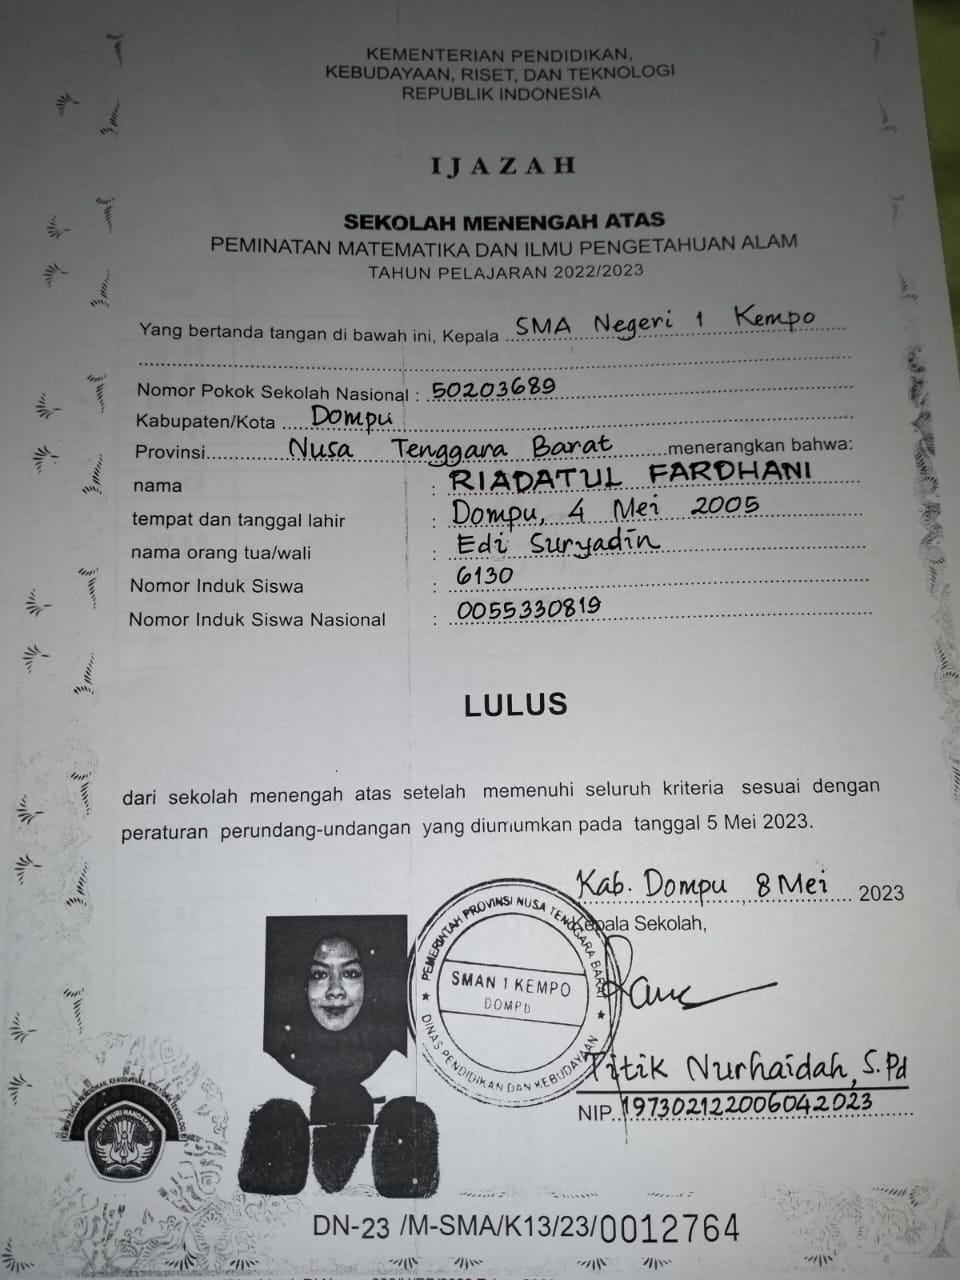 KEMENTERIAN PENDIDIKAN,
KEBUDAYAAN, RISET, DAN TEKNOLOGI
REPUBLIK INDONESIA
IJAZAH
SEKOLAH MENENGAH ATAS
PEMINATAN MATEMATIKA DAN ILMU PENGETAHUAN ALAM
TAHUN PELAJARAN 2022/2023
Yang bertanda tangan di bawah ini, Kepala SMA Negeri 1 Kempo
Nomor Pokok Sekolah Nasional : 50203689
Kabupaten/Kota Dompu
Provinsi Nusa Tenggara Barat menerangkan bahwa:
nama : RIADATUL FARDHANI
tempat dan tanggal lahir : Dompu, 4 Mei 2005
nama orang tua/wali : Edi Suryadin
Nomor Induk Siswa : 6130
Nomor Induk Siswa Nasional : 0055330819
LULUS
dari sekolah menengah atas setelah memenuhi seluruh kriteria sesuai dengan
peraturan perundang-undangan yang diumumkan pada tanggal 5 Mei 2023.
Kab. Dompu, 8 Mei 2023
Kepala Sekolah,
PEMERINTAH PROVINSI NUSA TENGGARA BARAT
SMAN 1 KEMPO
DOMPU
DINAS PENDIDIKAN DAN KEBUDAYAAN
Titik Nurhaidah, S.Pd
NIP. 197302122006042023
TUT WURI HANDAYANI
DN-23 /M-SMA/K13/23/0012764